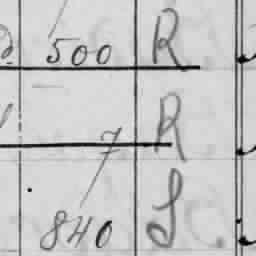 500 R
7 R
840 S